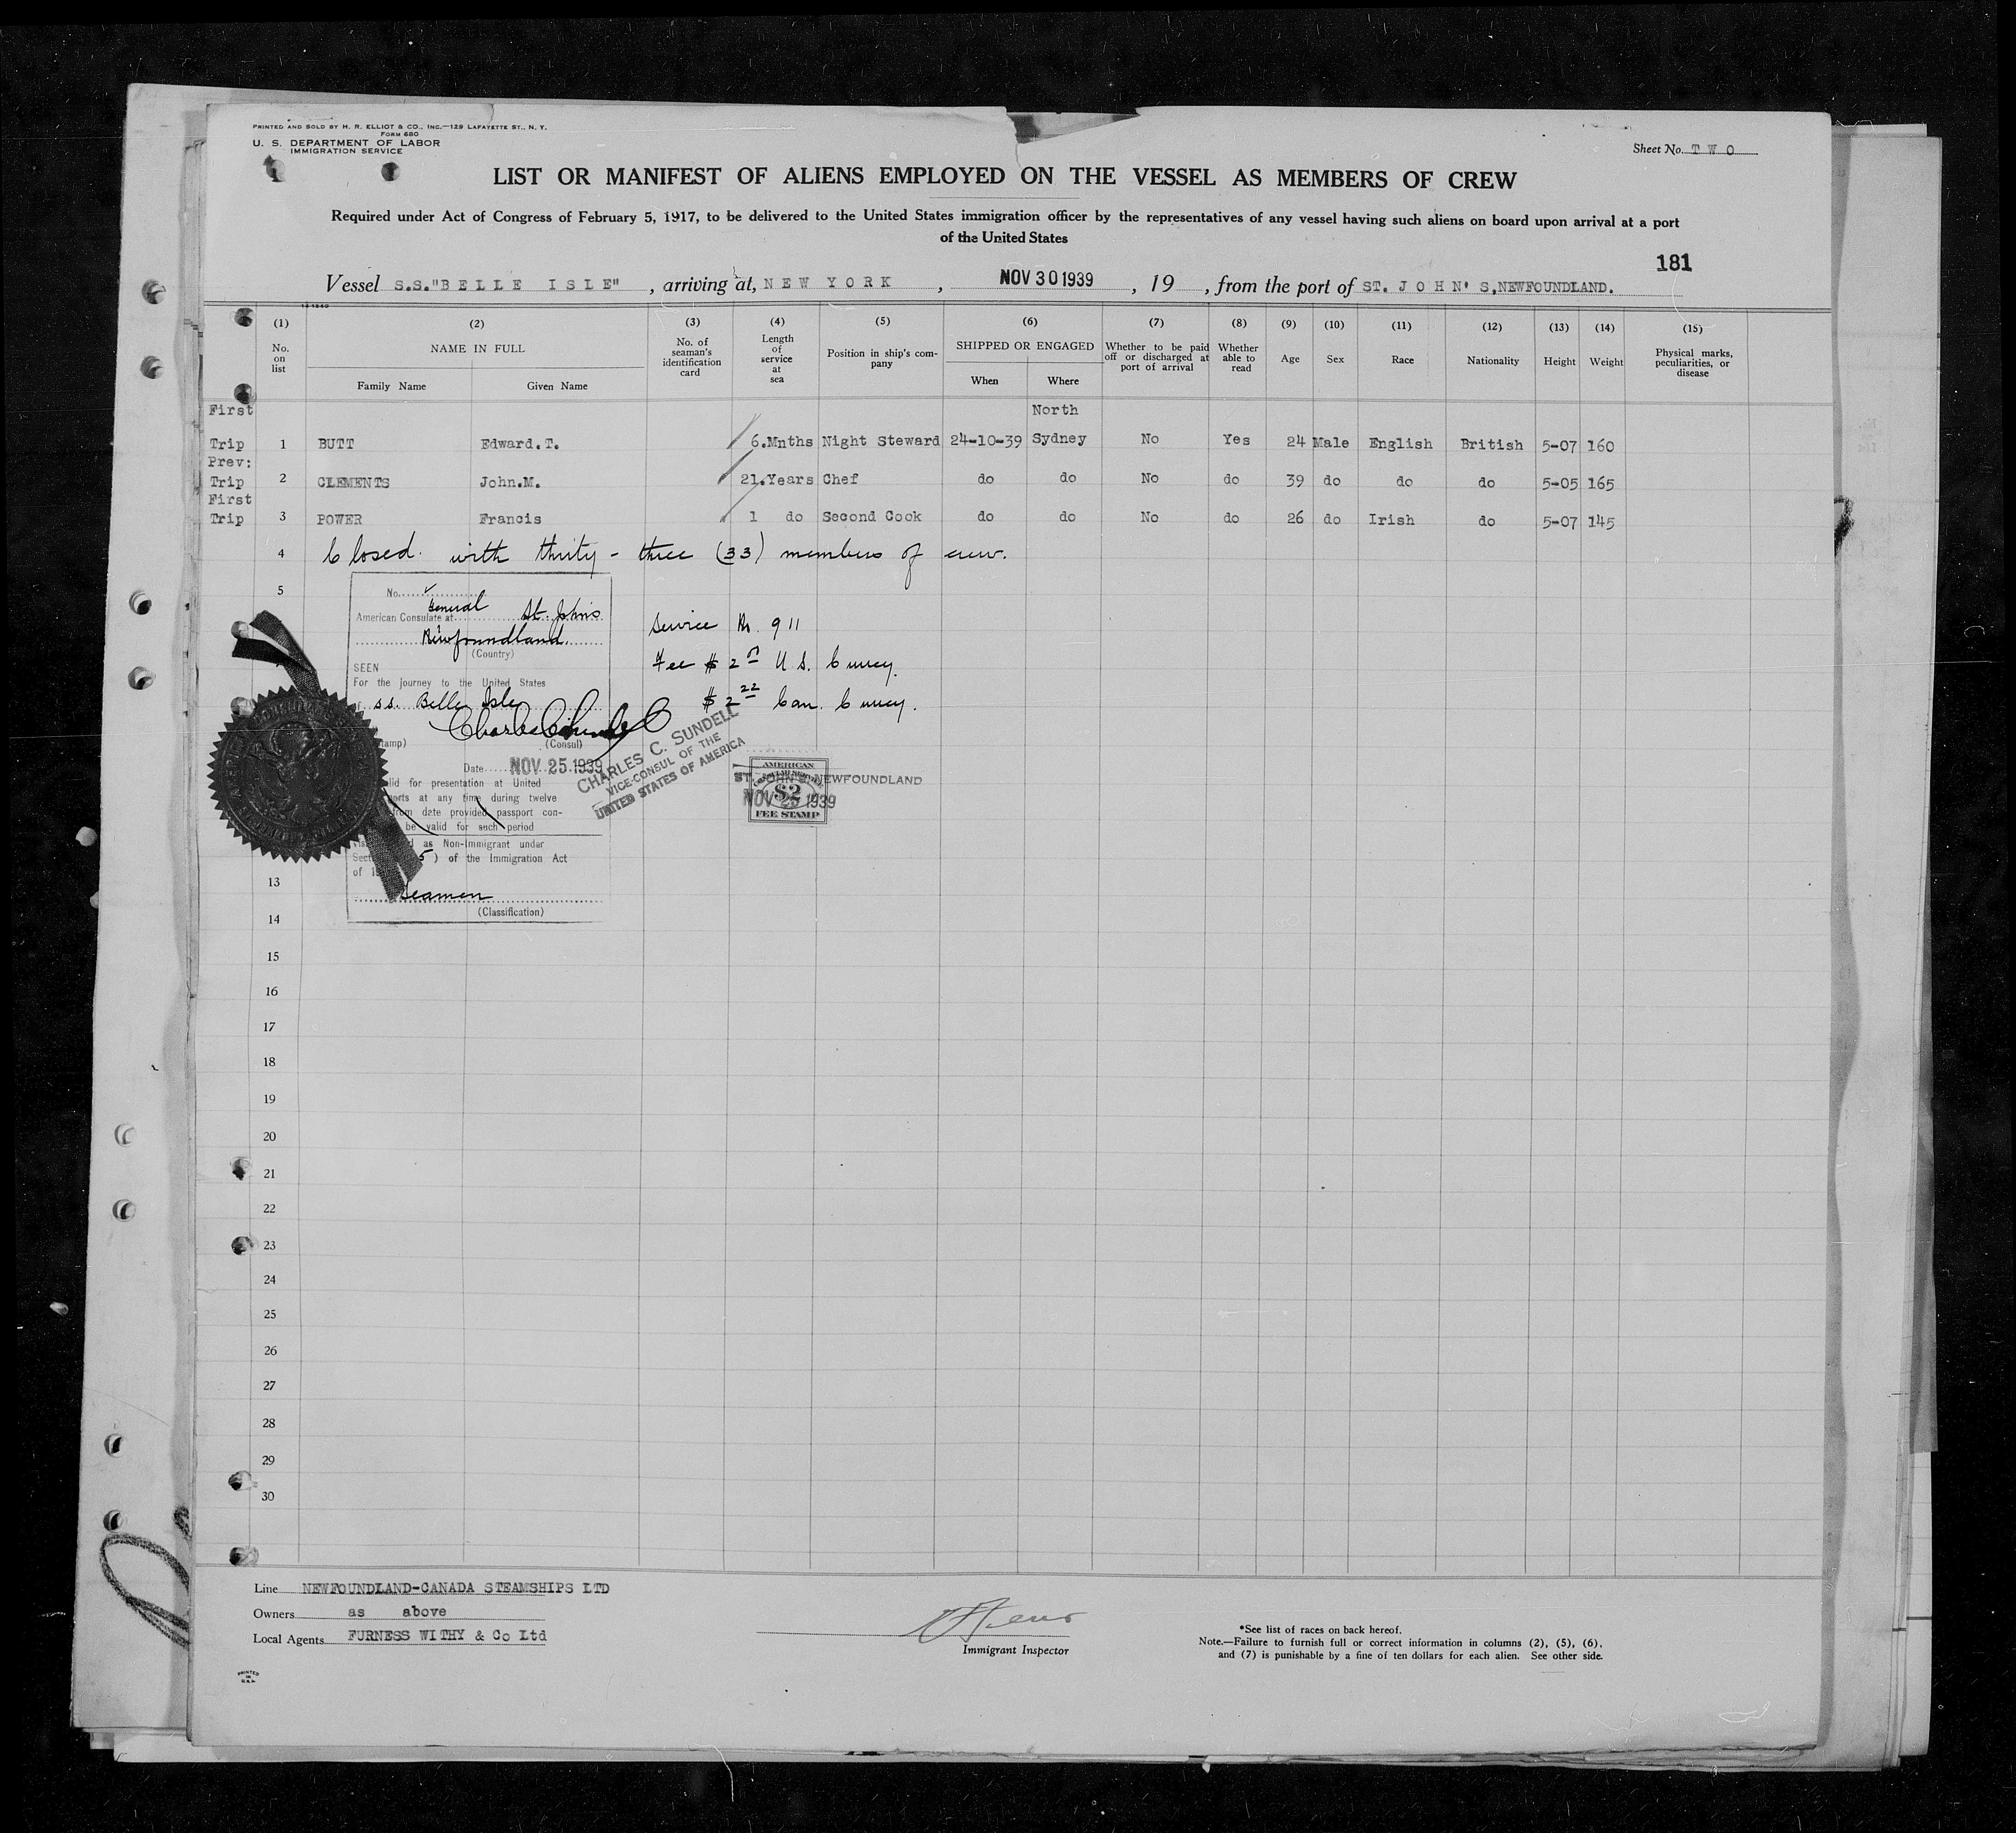 PRINTED AND SOLD BY H. R. ELLIOT & CO., INC.—129 LAFAYETTE ST., N. Y.
FORM 680
U. S. DEPARTMENT OF LABOR
IMMIGRATION SERVICE
Sheet No. T W O
LIST OR MANIFEST OF ALIENS EMPLOYED ON THE VESSEL AS MEMBERS OF CREW
Required under Act of Congress of February 5, 1917, to be delivered to the United States immigration officer by the representatives of any vessel having such aliens on board upon arrival at a port
of the United States
181
Vessel S.S."BELLE ISLE", arriving at, NEW YORK, NOV 30 1939, 19 , from the port of ST. JOHN'S, NEWFOUNDLAND.
(1) (2) (3) (4) (5) (6) (7) (8) (9) (10) (11) (12) (13) (14) (15)
No. on list NAME IN FULL Family Name Given Name No. of seaman's identification card Length of service at sea Position in ship's company SHIPPED OR ENGAGED When Where Whether to be paid off or discharged at port of arrival Whether able to read Age Sex Race Nationality Height Weight Physical marks, peculiarities, or disease
First North
Trip 1 BUTT Edward.T. 6.Mnths Night Steward 24-10-39 Sydney No Yes 24 Male English British 5-07 160
Prev:
Trip 2 CLEMENTS John.M. 21.Years Chef do do No do 39 do do do 5-05 165
First
Trip 3 POWER Francis 1 do Second Cook do do No do 26 do Irish do 5-07 145
4 Closed. with thirty - three (33) members of crew.
5
No.
General
American Consulate at St. Johns
Newfoundland.
(Country)
SEEN
For the journey to the United States
ss. Belle Isle
(Consul)
Date NOV 25 1939
lid for presentation at United
orts at any time during twelve
from date provided passport con-
be valid for such period
as Non-Immigrant under
Sect 5) of the Immigration Act
of 1
Seamen
(Classification)
Service No. 911
Fee $ 2 U S. Currcy.
$ 2 22 Can. Currcy.
CHARLES C. SUNDELL
VICE-CONSUL OF THE
UNITED STATES OF AMERICA
AMERICAN
ST. JOHN'S, NEWFOUNDLAND
$2
NOV 25 1939
FEE STAMP
13
14
15
16
17
18
19
20
21
22
23
24
25
26
27
28
29
30
Line NEWFOUNDLAND-CANADA STEAMSHIPS LTD
Owners as above
Local Agents FURNESS WITHY & Co Ltd
Immigrant Inspector
*See list of races on back hereof.
Note.—Failure to furnish full or correct information in columns (2), (5), (6),
and (7) is punishable by a fine of ten dollars for each alien. See other side.
PRINTED
IN
U.S.A.